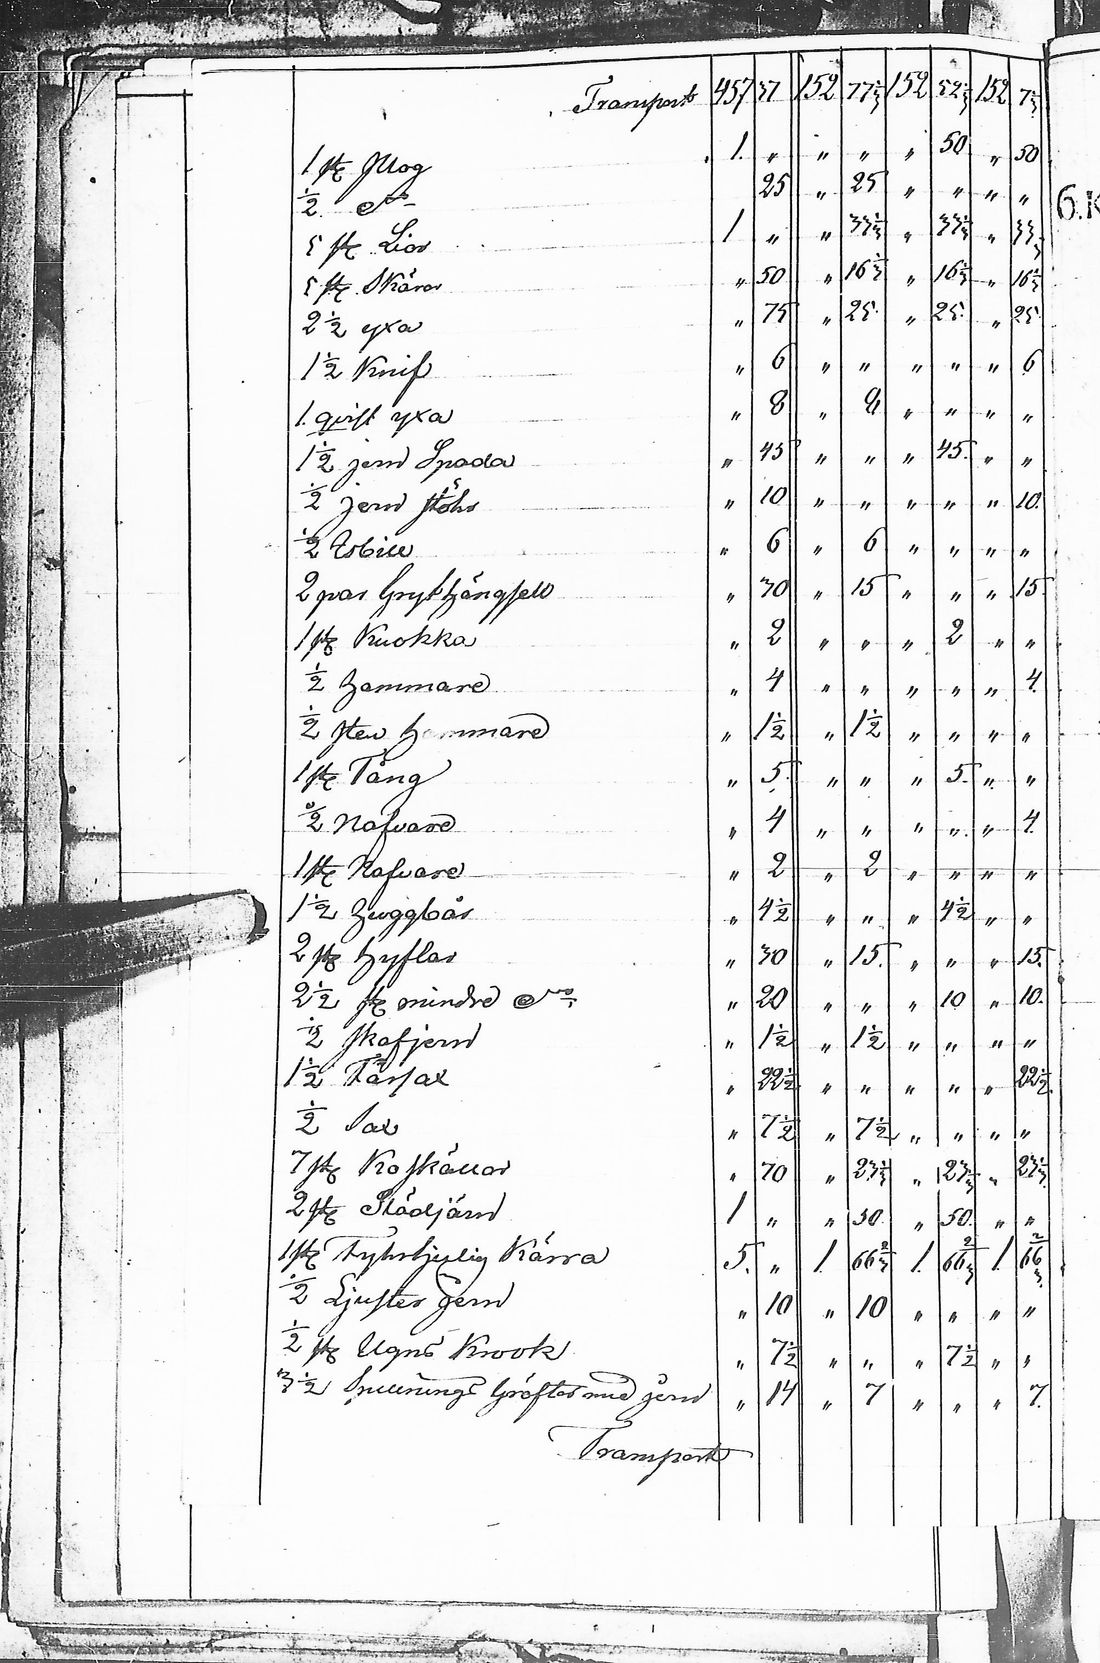 Transport 457 37 152 77½ 152 52½ 152 7½
1 st Plog 1. " " " " 50 " 50
½ do " 25 " 25 " " " "
5 st Liar 1 " " 33⅓ " 33⅓ " 33⅓
5 st Skäror " 50 " 16⅔ " 16⅔ " 16⅔
2 ½ yxa " 75 " 25 " 25 " 25
1 ½ Knif " 6 " " " " " 6
1. qvist yxa " 8 " 8 " " " "
1 ½ jern Spada " 45 " " " 45. " "
½ jern Störs " 10 " " " " " 10.
½ " 6 " 6 " " " "
2 par Grythängseld " 30 " 15 " " " 15
1 st Kuokka " 2 " " " 2 " "
½ hammare " 4 " " " " " 4
½ sten hammare " 1½ " 1½ " " " "
1 st Tång " 5. " " " 5. " "
½ Nafvare " 4 " " " " " 4
1 st Nafvare " 2 " 2 " " " "
1 ½ huggbår " 4½ " " " 4½ " "
2 st hyflar " 30 " 15. " " " 15.
2 ½ st mindre do " 20 " " " 10 " 10.
½ skafjern " 1½ " 1½ " " " "
1 ½ Fårsax " 22½ " " " " " 22½
½ Sax " 7½ " 7½ " " " "
7 st Koskällor " 70 " 23⅓ " 23⅓ " 23⅓
2 st Städjärn 1 " " 50. " 50. " "
1 st Fyrhjulig Kärra 5. " 1. 66⅔ 1. 66⅔ 1. 66⅔
½ Ljuster jern " 10 " 10 " " " "
½ st Ugns Krook " 7½ " " " 7½ " "
3 ½ med jern " 14 " 7 " " " 7.
Transport
6.K